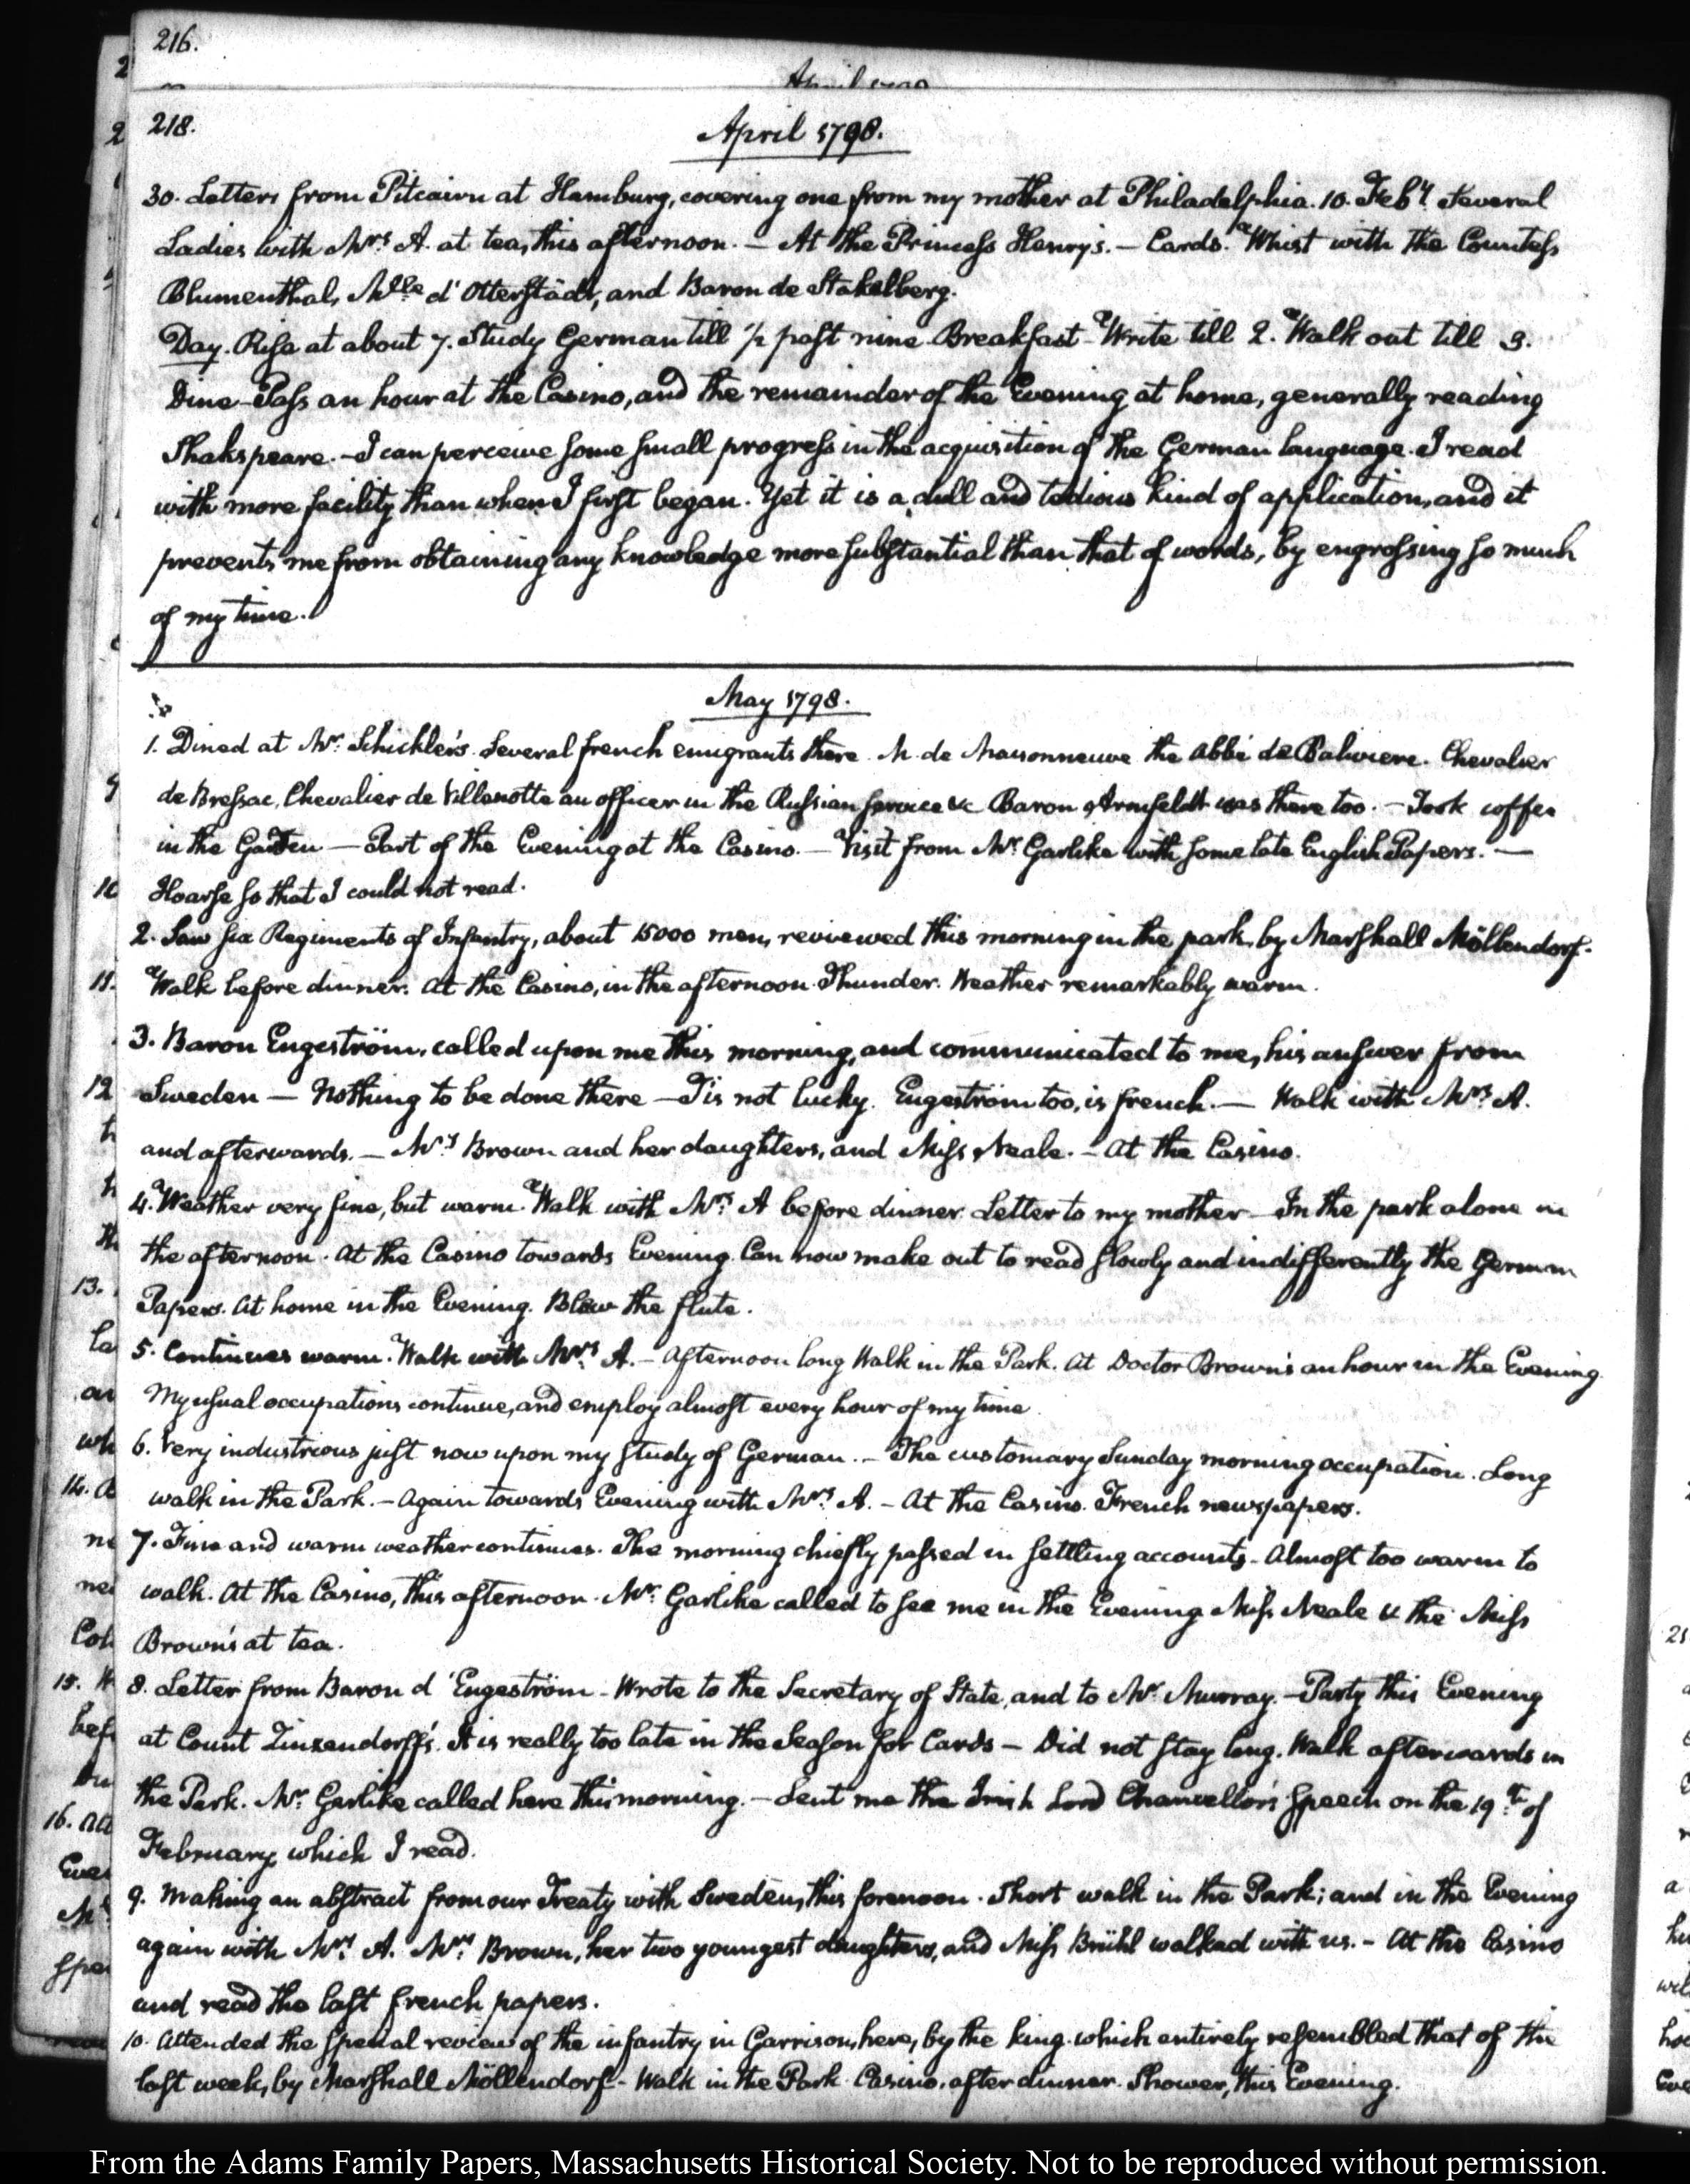 216.
April 1798
218.
April 1798.
30. Letters from Pitcairn at Hamburg, covering one from my mother at Philadelphia. 10. Feby. Several
Ladies with Mrs. A. at tea, this afternoon. — At the Princess Henry's. — Cards. Whist with the Countess
Blumenthal, Mlle d'Otterstädt, and Baron de Stakelberg.
Day. Rise at about 7. Study German till 1/2 past nine. Breakfast - Write till 2. Walk out till 3.
Dine - Pass an hour at the Casino, and the remainder of the Evening at home, generally reading
Shakspeare. - I can perceive some small progress in the acquisition of the German language. I read
with more facility than when I first began. Yet it is a dull and tedious kind of application, and it
prevents me from obtaining any knowledge more substantial than that of words, by engrossing so much
of my time.
May 1798.
1. Dined at Mr. Schickler's. Several french emigrants there. M. de Maisonneuve the Abbé de Baliviere. Chevalier
de Bressac, Chevalier de Villenotte an officer in the Russian service &c Baron Armfeldt was there too. — Took coffee
in the Garden — Part of the Evening at the Casino. — Visit from Mr. Garlike with some late English Papers. —
Hoarse so that I could not read.
2. Saw six Regiments of Infantry, about 15000 men, reviewed this morning in the park, by Marshall Möllendorf.
Walk before dinner. At the Casino, in the afternoon. Thunder. Weather remarkably warm.
3. Baron Engeström, called upon me this morning, and communicated to me, his answer from
Sweden — Nothing to be done there — Tis not lucky. Engeström too, is french. — Walk with Mrs. A.
and afterwards. — Mrs. Brown and her daughters, and Miss Neale. - At the Casino.
4. Weather very fine, but warm. Walk with Mrs. A before dinner. Letter to my mother - In the park alone in
the afternoon. At the Casino towards Evening. Can now make out to read slowly and indifferently the German
Papers. At home in the Evening. Blow the flute.
5. Continues warm. Walk with Mrs. A. - Afternoon long Walk in the Park. At Doctor Brown's an hour in the Evening
My usual occupations continue, and employ almost every hour of my time.
6. Very industrious just now upon my study of German. - The customary Sunday morning occupation. Long
walk in the Park. - Again towards Evening with Mrs. A. - At the Casino. French newspapers.
7. Fine and warm weather continues. The morning chiefly passed in settling accounts - Almost too warm to
walk. At the Casino, this afternoon. Mr. Garlike called to see me in the Evening Miss Neale & the Miss
Brown's at tea.
8. Letter from Baron d'Engeström - Wrote to the Secretary of State, and to Mr. Murray. - Party this Evening
at Count Zinzendorff's. It is really too late in the Season for Cards — Did not stay long. Walk afterwards in
the Park. Mr. Garlike called here this morning. - Sent me the Irish Lord Chancellor's speech on the 19th. of
February, which I read.
9. Making an abstract from our Treaty with Sweden, this forenoon. Short walk in the Park; and in the Evening
again with Mrs. A. Mrs. Brown, her two youngest daughters, and Miss Brühl walked with us. - At the Casino
and read the last french papers.
10. Attended the special review of the infantry in Garrison, here, by the king. which entirely resembled that of the
last week, by Marshall Möllendorf - Walk in the Park. Casino, after dinner. Shower, this Evening.
From the Adams Family Papers, Massachusetts Historical Society. Not to be reproduced without permission.